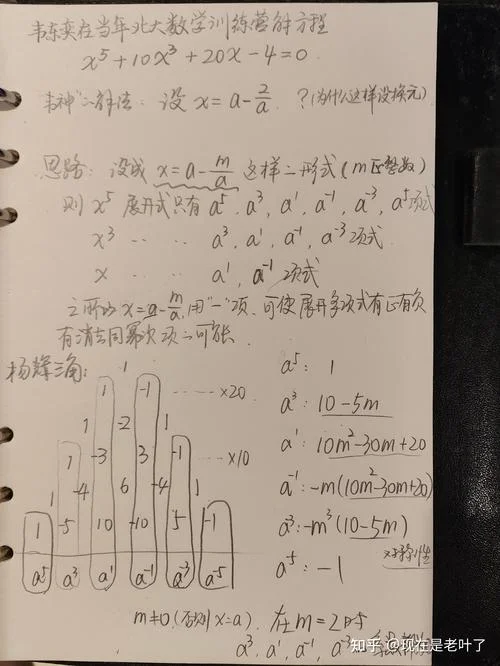 韦东奕在当年北大数学训练营解方程
x⁵+10x³+20x-4=0
韦神"二解法: 设 x=a-2/a. ?(为什么这样设换元)
思路: 设成 x=a-m/a 这样二形式(m正整数)
则 x⁵ 展开式只有 a⁵, a³, a¹, a⁻¹, a⁻³, a⁵项式
x³ ‥ ‥ a³, a¹, a⁻¹, a⁻³项式.
x ‥‥ a¹, a⁻¹项式
之所以 x=a-m/a, 用"-"项, 可使展开多项式有正有负
有消去同幂次项二可能.
杨辉三角:
1
1 -1 ······ ×20
1 -2 1
1 -3 3 -1 ··· ×10
1 -4 6 -4 1
1 -5 10 -10 5 -1
a⁵ a³ a¹ a⁻¹ a⁻³ a⁻⁵
a⁵: 1
a³: 10-5m
a¹: 10m²-30m+20
a⁻¹: -m(10m²-30m+20)
a³: -m³(10-5m)
a⁵: -1
对称性
m≠0(否则x=a). 在m=2时
a³, a¹, a⁻¹, a⁻³
知乎 @现在是老叶了